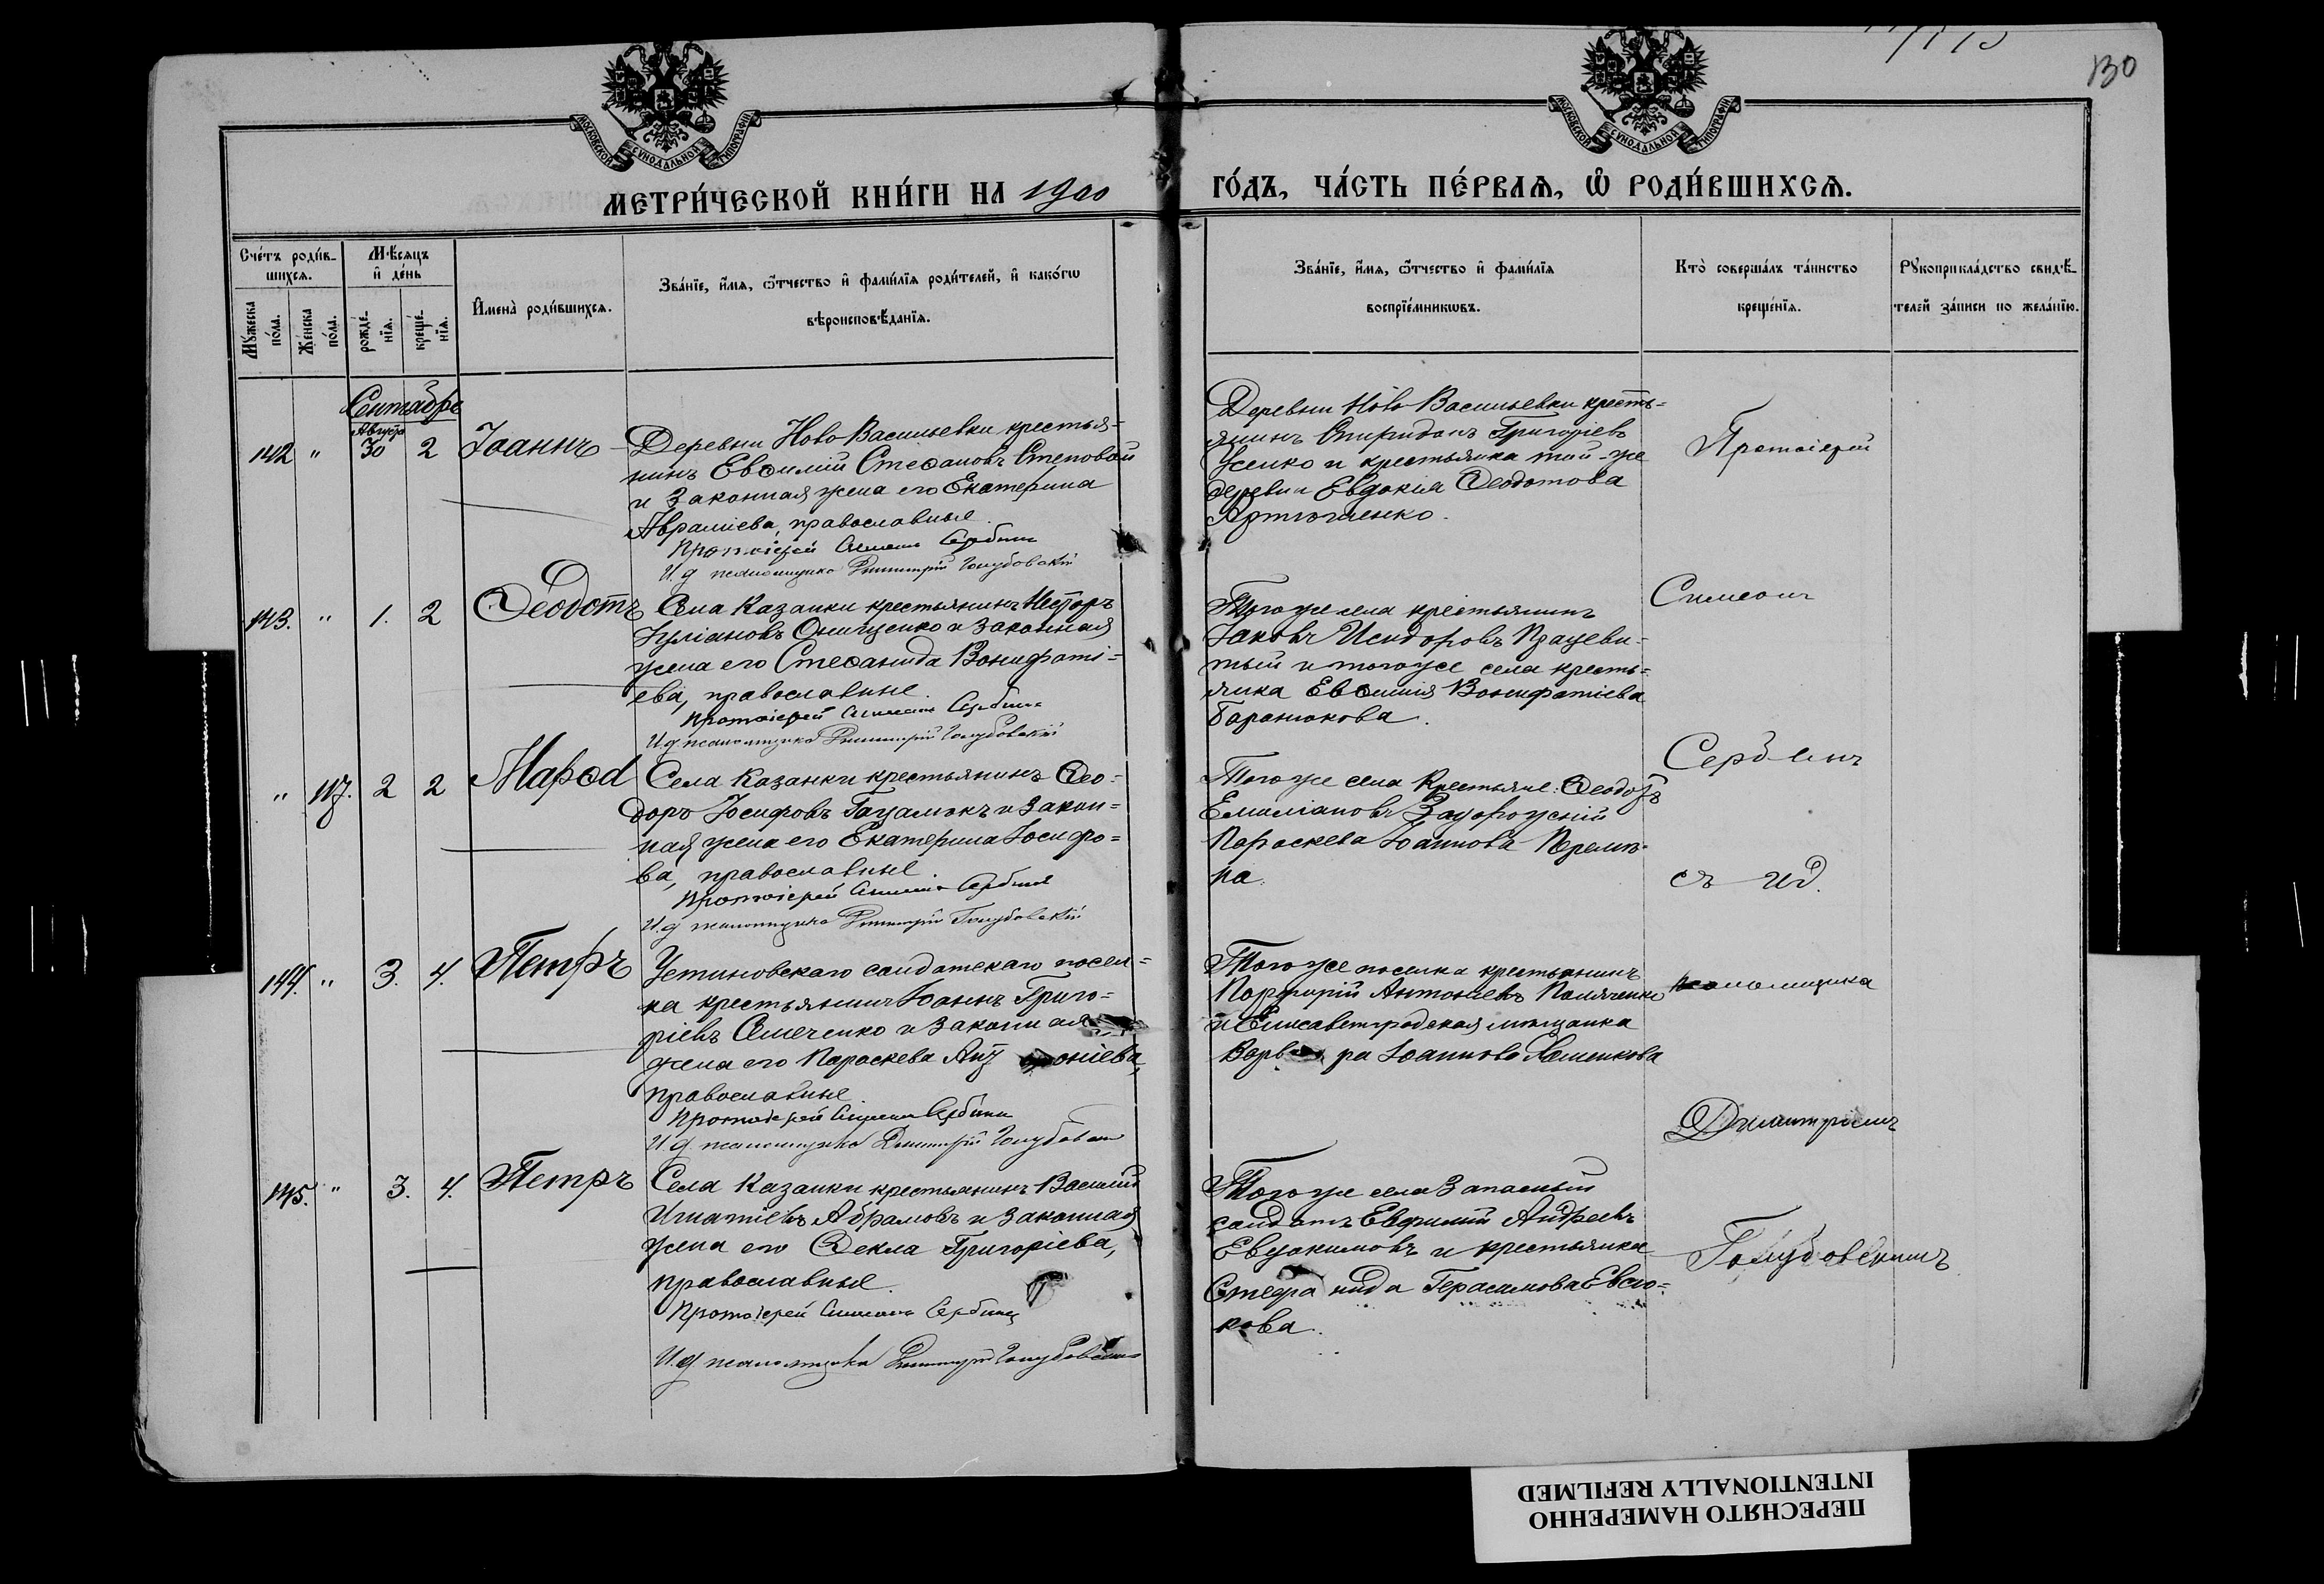 130
МОСКОВСКОЙ СУНОДАЛЬНОЙ ТИПОГРАФІИ
МОСКОВСКОЙ СУНОДАЛЬНОЙ ТИПОГРАФІИ
МЕТРИ́ЧЕСКОЙ КНИ́ГИ НА 1900
ГО́ДЪ, ЧА́СТЬ ПЕ́РВАѦ, Ѡ҆ РОДИ́ВШИХСѦ.
Сче́тъ роди́в-
шихсѧ.
Мꙋжеска по́ла.
Же́нска по́ла.
Мѣ́сѧцъ
и҆ де́нь
рожде́-
нїѧ.
креще́-
нїѧ.
И҆мена̀ роди́вшихсѧ.
Зва́нїе, и҆́мѧ, ѻ҆́тчество и҆ фами́лїѧ роди́телей, и҆ како́гѡ
вѣроисповѣ́данїѧ.
Зва́нїе, и҆́мѧ, ѻ҆́тчество и҆ фами́лїѧ
воспрїе́мникѡвъ.
Кто̀ соверша́лъ та́инство
креще́нїѧ.
Рꙋкоприкла́дство свидѣ́-
телей за́писи по жела́нїю.
Сентябрь
Августа
142 " 30 2 Іоаннъ
Деревни Ново Васильевки крестья-
нинъ Евѳимій Стеѳановъ Степовой
и законная жена его Екатерина
Авраміева, православные.
Протоіерей Симеонъ Сербинъ
И. д псаломщика Димитрій Голубовскій
Деревни Ново-Васильевки кресть-
янинъ Спиридонъ Григоріевъ
Усенко и крестьянка той-же
деревни Евдокія Ѳеодотова
Артюшенко.
143. " 1. 2 Ѳеодотъ
Села Казанки крестьянинъ Несторъ
Іуліановъ Онищенко и законная
жена его Стеѳанида Вонифаті=
ева, православные.
Протоіерей Симеонъ Сербинъ
И. д псаломщика Димитрій Голубовскій
Того же села крестьянинъ
Іаковъ Исидоровъ
и того же села кресть=
янка Евѳимія Вонифатіева
Баранюкова.
" 117. 2 2 Марѳа
Села Казанки крестьянинъ Ѳео=
доръ Іосифовъ и закон=
ная жена его Екатерина Іосифо=
ва, православные.
Протоіерей Симеонъ Сербинъ
И. д псаломщика Димитрій Голубовскій
Того же села Крестьяне: Ѳеодоръ
Емиліановъ Задорожній
Параскева Іоаннова
на.
144. " 3. 4. Петръ
Устиновскаго солдатскаго посел=
ка крестьянинъ Іоаннъ Григо=
ріевъ Семченко и законная
жена его Параскева
православные.
Протоіерей Симеонъ Сербинъ
И. д псаломщика Димитрій Голубовскій
Того же поселка крестьянинъ
Порфирій Антоніевъ
и Елисаветградская мѣщанка
Варвара Іоаннова
145. " 3. 4. Петръ
Села Казанки крестьянинъ Василій
Игнатіевъ Абрамовъ и законная
жена его Ѳекла Григоріева,
православные.
Протоіерей Симеонъ Сербинъ
И. д псаломщика Димитрій Голубовскій
Того же села Запасный
солдатъ Евфимій Андреевъ
Евдокимовъ и крестьянка
Стефанида Герасимова Евсю=
кова.
Протоіерей
Симеонъ
Сербинъ
съ И.д.
псаломщика
Димитріемъ
Голубовскимъ
ПЕРЕСНЯТО НАМЕРЕННО
INTENTIONALLY REFILMED